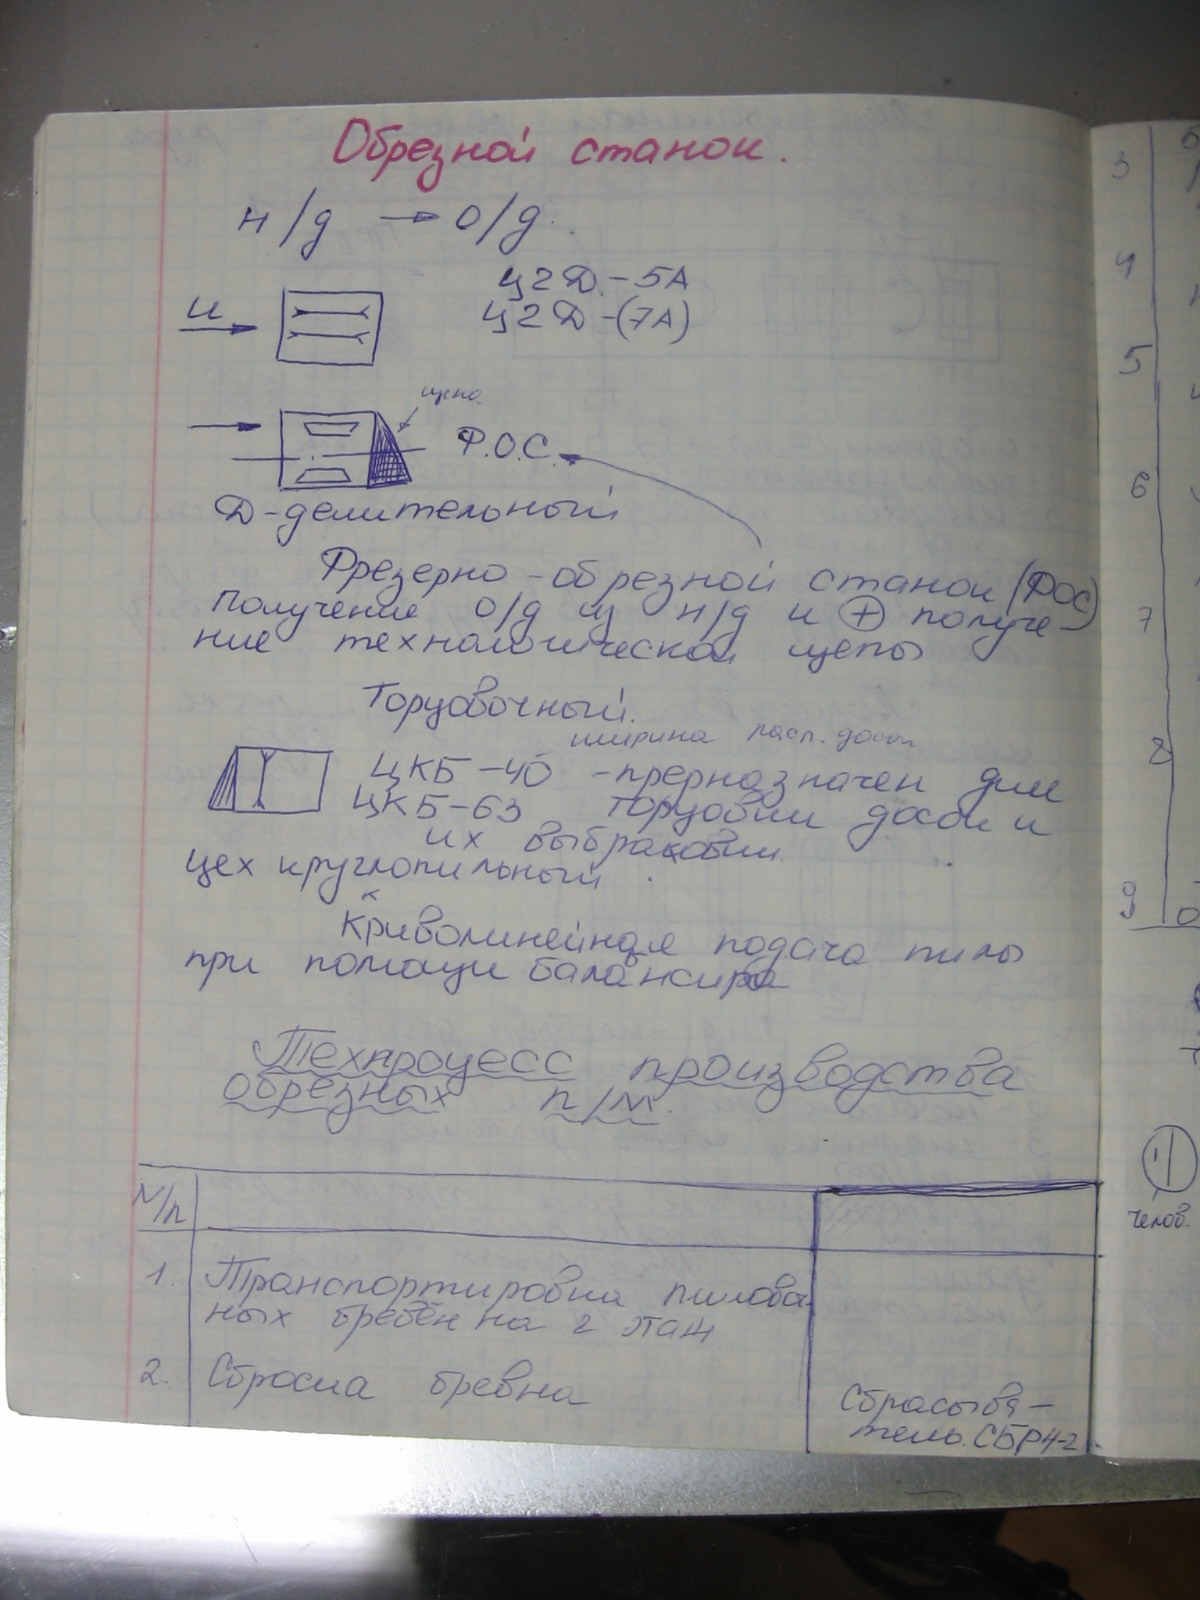 Обрезной станок.
н/д → о/д.
Ц2Д-5А
Ц2Д-(7А)
и
щепа
Ф.О.С.
Д-делительный
Фрезерно-обрезной станок (ФОС)
Получение о/д из н/д и + получе-
ние технологической щепы
Торцовочный.
ширина расп. досок
ЦКБ-40 -предназначен для
ЦКБ-63 торцовки досок и
их выбраковки.
цех круглопильный
Криволинейная подача пилы
при помощи балансира
Техпроцесс производства
обрезных п/м.
N/п
1. Транспортировка пилова-
ных брёвен на 2 этаж
2. Сброска бревна
Сбрасыва-
тель СБР4-2
3
4
5
6
7
8
9
челов.